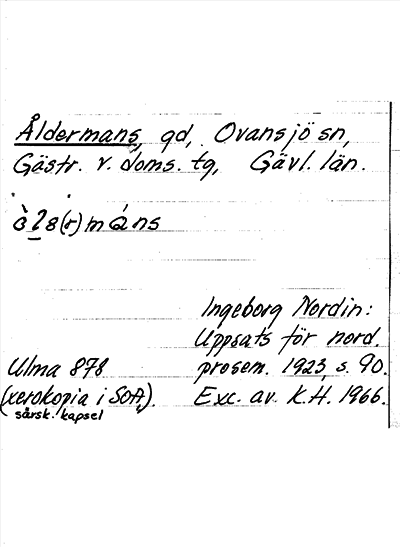 Åldermans, gd, Ovansjö sn,
Gästr. v. doms. tg, Gävl. län.
Ingeborg Nordin:
Uppsats för nord.
Ulma 878 prosem. 1923, s. 90.
(xerokopia i SOA,). Exc. av K.H. 1966.
särsk. kapsel